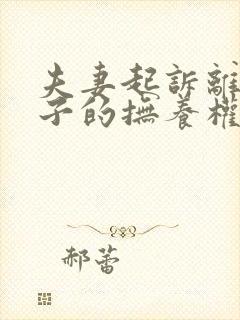 夫妻起訴離
子的撫養權
郝蕾